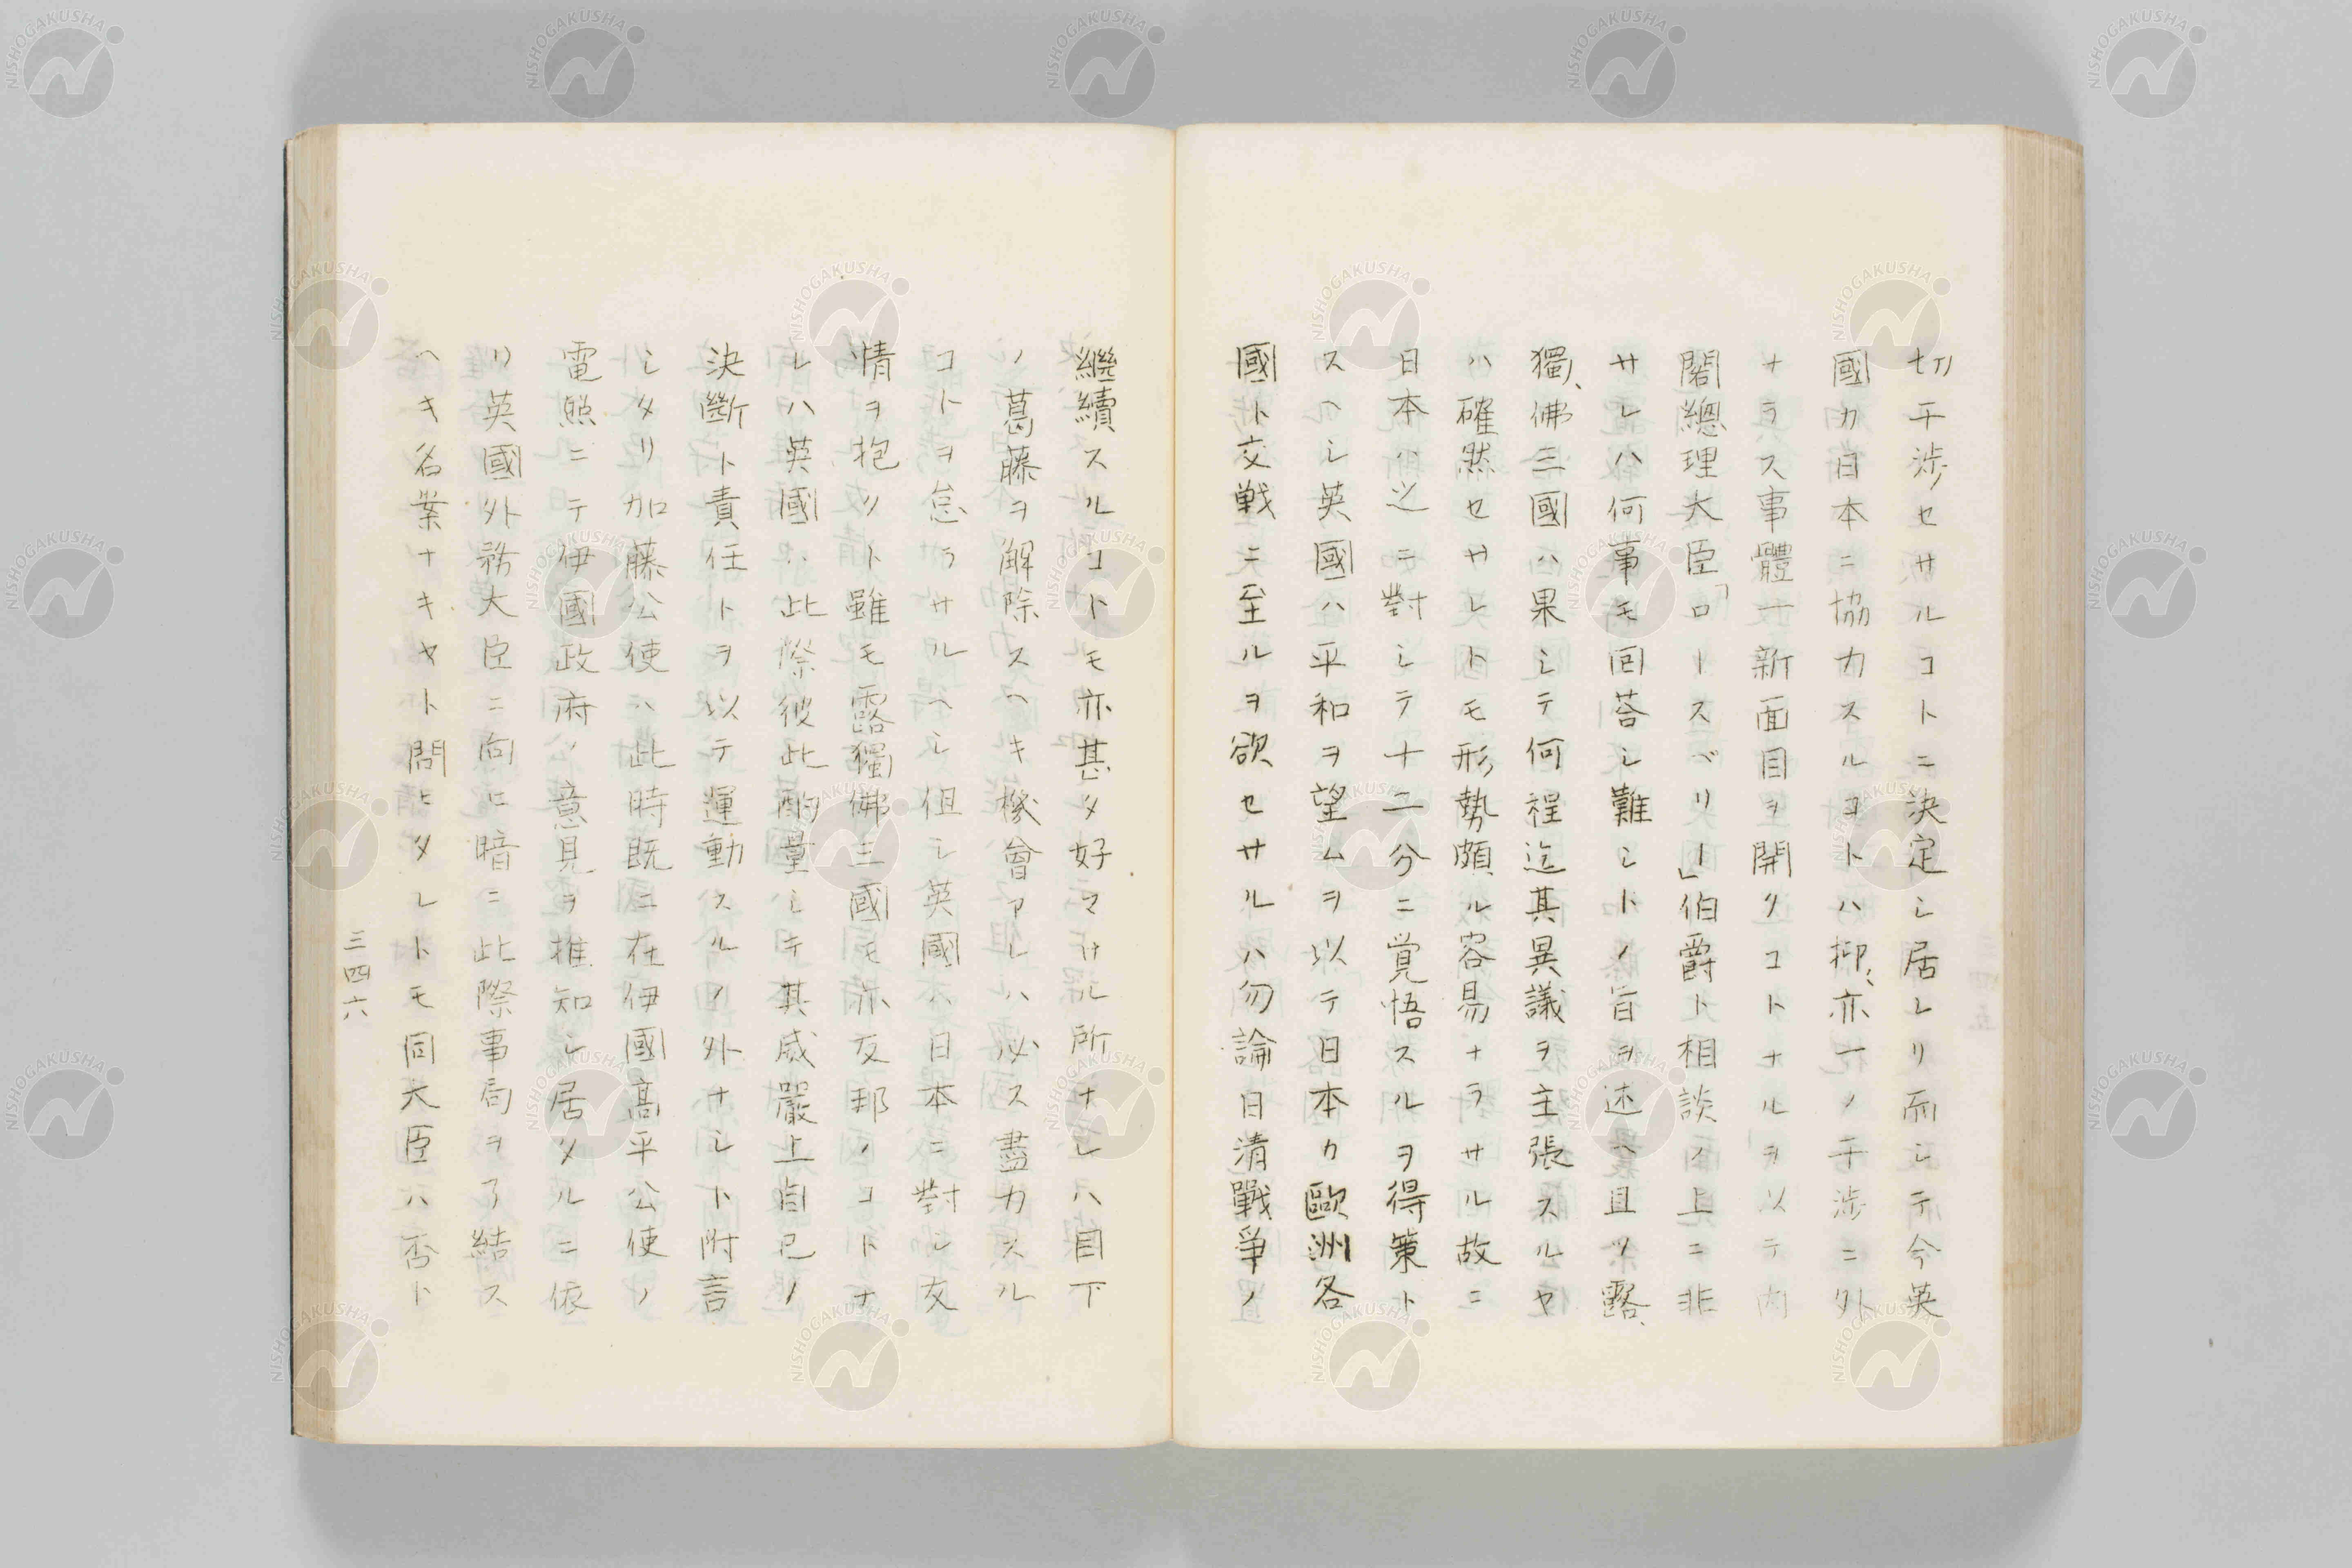 切干渉セサルコトニ決定シ居レリ而シテ今英
國カ日本ニ協力スルコトハ抑、亦一ノ干渉ニ外
ナラス事體一新面目ヲ開クコトナルヲ以テ内
閣總理大臣「ロースベリー」伯爵ト相談ノ上ニ非
サレハ何事モ回答シ難シトノ旨ヲ述ヘ且ツ露、
獨、佛三國ハ果シテ何程迄其異議ヲ主張スルヤ
ハ確然セサレトモ形勢頗ル容易ナラサル故ニ
日本ハ之ニ對シテ十二分ニ覚悟スルヲ得策ト
スヘシ英國ハ平和ヲ望ムヲ以テ日本カ歐洲各
國ト交戦ニ至ルヲ欲セサルハ勿論日清戰爭ノ
繼續スルコトモ亦甚タ好マサル所ナレハ目下
ノ葛藤ヲ解除スヘキ機會アレハ必ス盡力スル
コトヲ怠ラサルヘシ但シ英國ハ日本ニ對シ友
情ヲ抱クト雖モ露獨佛三國モ亦友邦ノコトナ
レハ英國ハ此際彼此酌量シテ其威嚴上自己ノ
決斷ト責任トヲ以テ運動スルノ外ナシト附言
シタリ加藤公使ハ此時既ニ在伊國高平公使ノ
電照ニテ伊國政府ノ意見ヲ推知シ居タルニ依
リ英國外務大臣ニ向ヒ暗ニ此際事局ヲ了結ス
ヘキ名案ナキヤト問ヒタレトモ同大臣ハ否ト
三四六
NISHOGAKUSHA